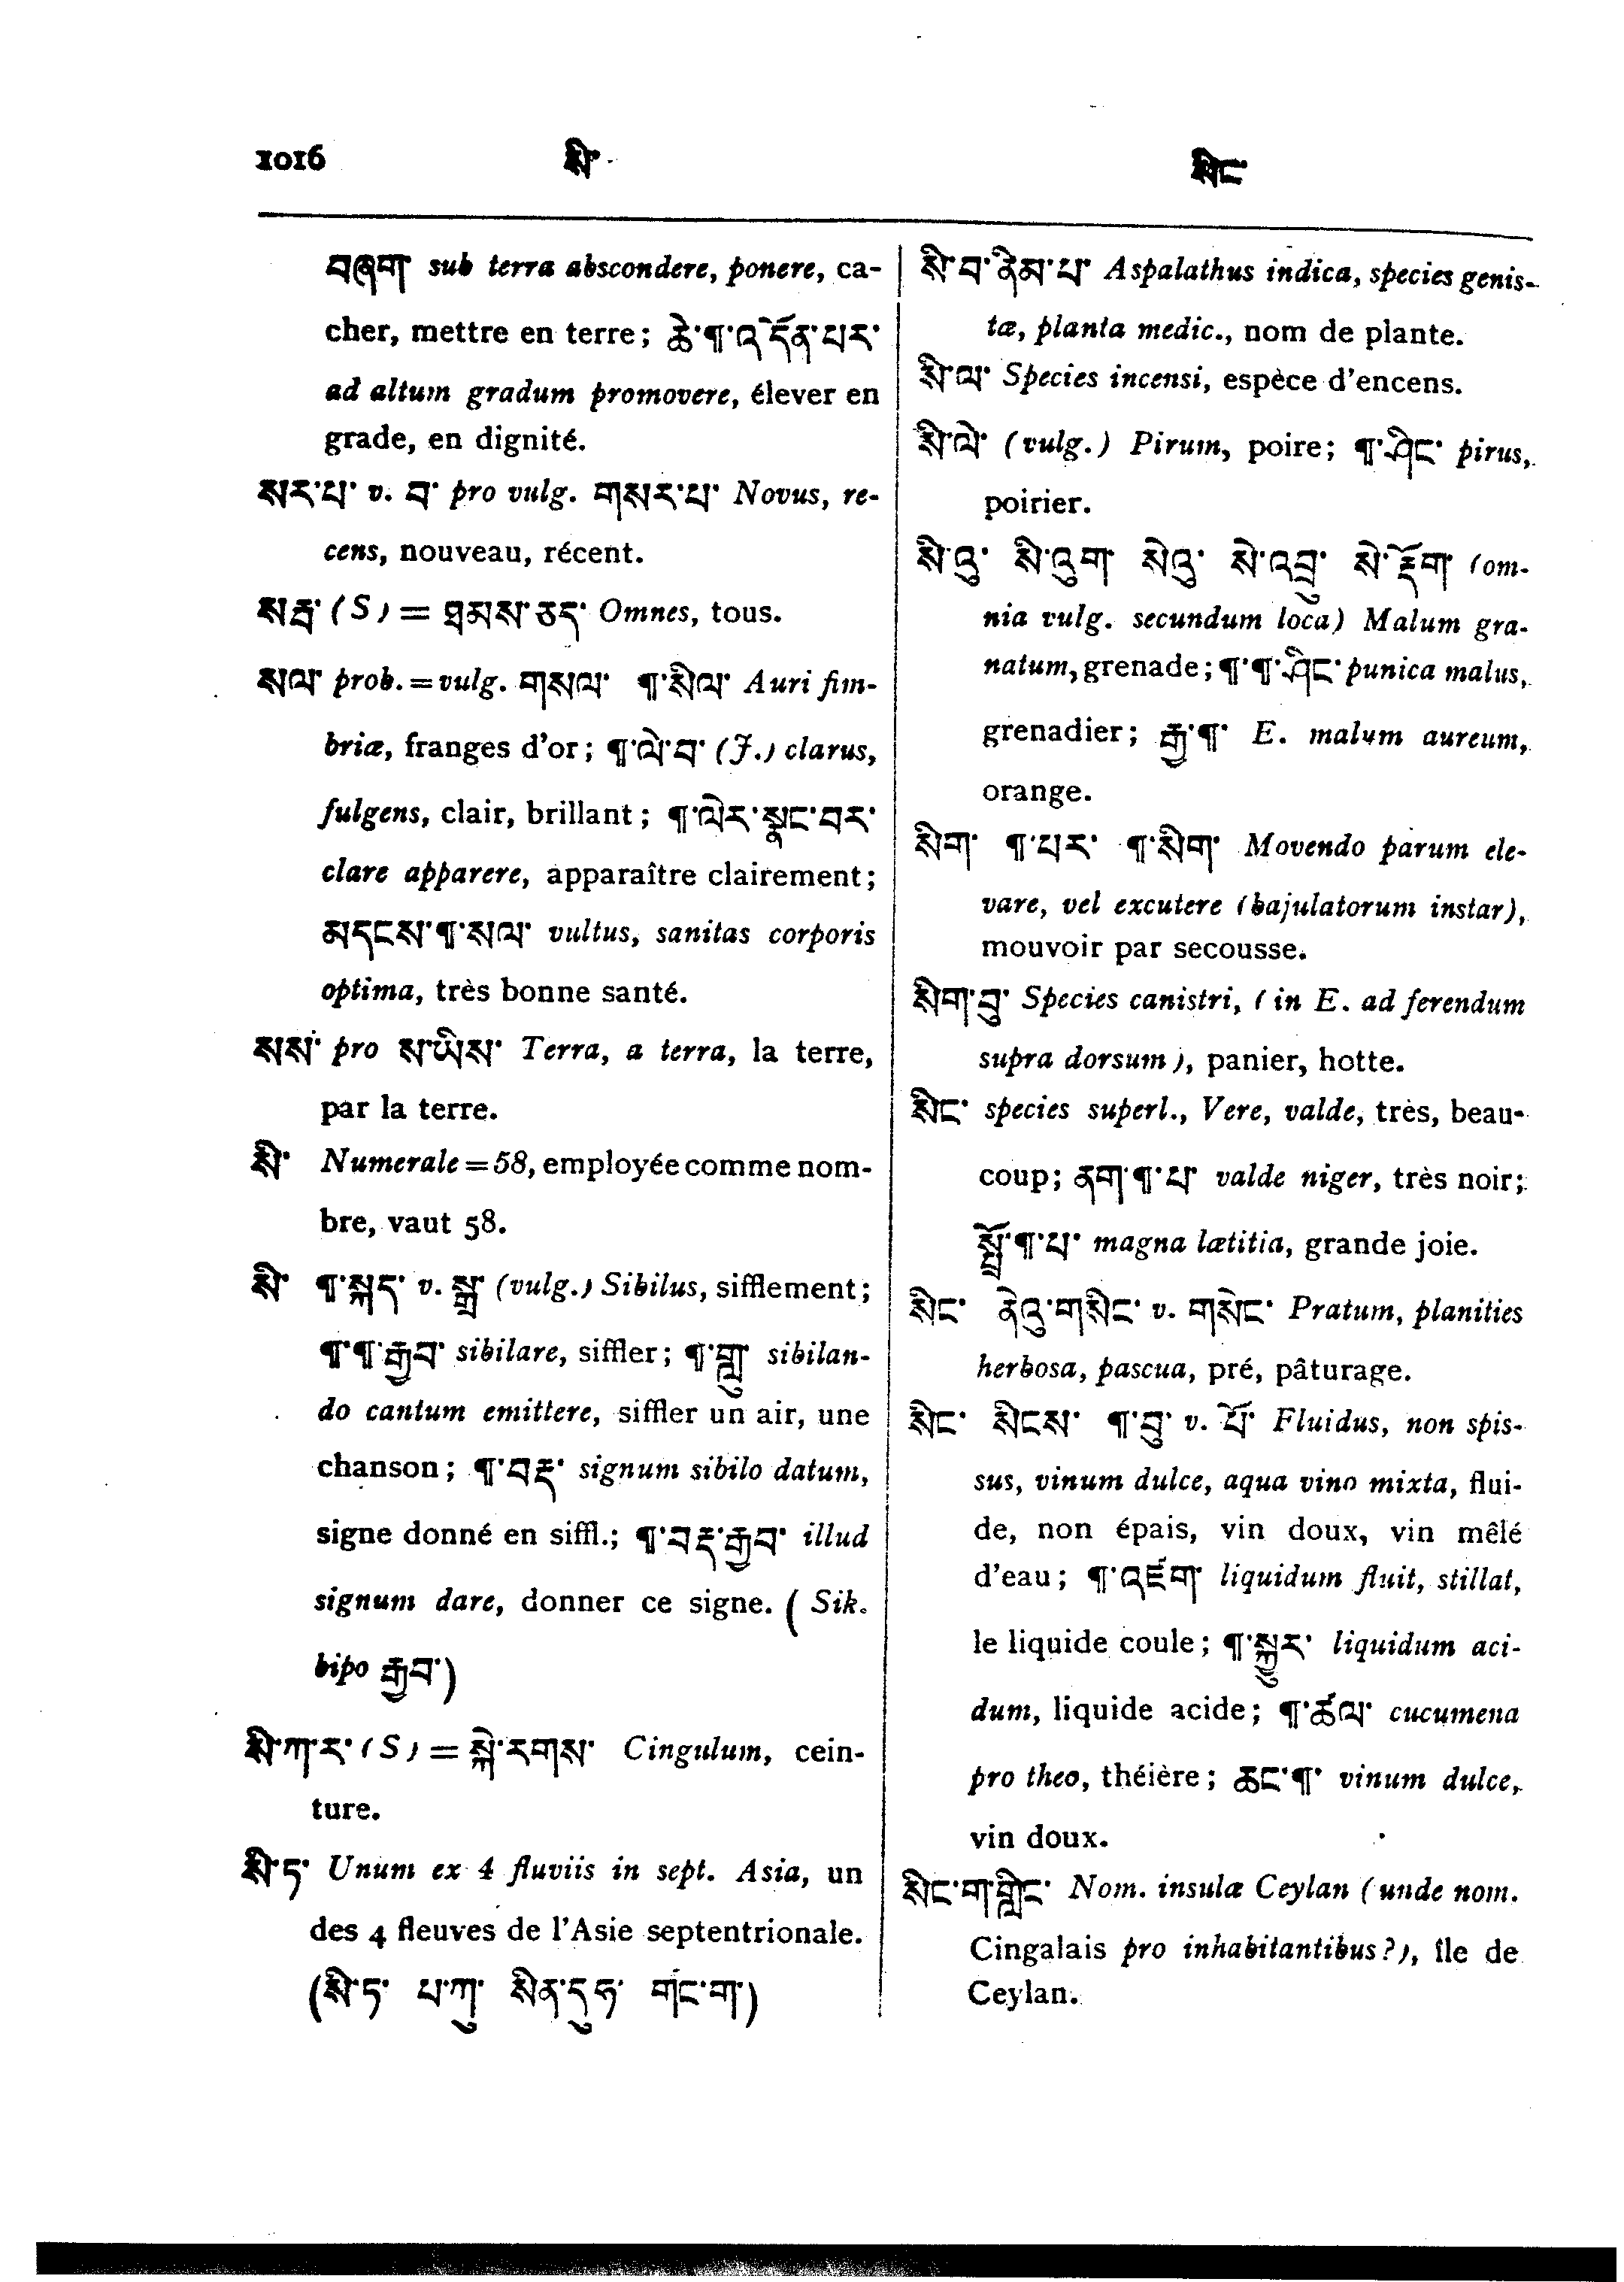 1016 སི་ སིང་
བཞག་ sub terra abscondere, ponere, ca-
cher, mettre en terre; ཆེ་¶་འདོན་པར་
ad altum gradum promovere, élever en
grade, en dignité.
སར་པ་ v. བ་ pro vulg. གསར་པ་ Novus, re-
cens, nouveau, récent.
སརྦ་ (S) = ཐམས་ཅད་ Omnes, tous.
སལ་ prob. = vulg. གསལ་ ¶་སིལ་ Auri fim-
briæ, franges d'or; ¶་ལེ་བ་ (J.) clarus,
fulgens, clair, brillant; ¶་ལེར་སྣང་བར་
clare apparere, apparaître clairement;
མདངས་¶་སལ་ vultus, sanitas corporis
optima, très bonne santé.
སས་ pro ས་ཡིས་ Terra, a terra, la terre,
par la terre.
སི་ Numerale = 58, employée comme nom-
bre, vaut 58.
སི་ ¶་སྐད་ v. སྒྲ་ (vulg.) Sibilus, sifflement;
¶་¶་རྒྱབ་ sibilare, siffler; ¶་གླུ་ sibilan-
do cantum emittere, siffler un air, une
chanson; ¶་བརྡ་ signum sibilo datum,
signe donné en siffl.; ¶་བརྡ་རྒྱབ་ illud
signum dare, donner ce signe. (Sik.
bipo རྒྱབ་)
སི་ཀ་ར་ (S) = སྐེ་རགས་ Cingulum, cein-
ture.
སི་ཏ་ Unum ex 4 fluviis in sept. Asia, un
des 4 fleuves de l'Asie septentrionale.
(སི་ཏ་ པ་ཀུ་ སིན་དུ་ཧ་ གང་ག་)
སི་བ་ནིམ་པ་ Aspalathus indica, species genis-
tæ, planta medic., nom de plante.
སི་ལ་ Species incensi, espèce d'encens.
སི་ལེ་ (vulg.) Pirum, poire; ¶་ཤིང་ pirus,
poirier.
སི་འུ་ སི་འུག་ སེའུ་ སེ་འབྲུ་ སེ་རྡོག་ (om-
nia vulg. secundum loca) Malum gra-
natum, grenade; ¶་¶་ཤིང་ punica malus,
grenadier; རྒྱ་¶་ E. malum aureum,
orange.
སིག་ ¶་པར་ ¶་སིག་ Movendo parum ele-
vare, vel excutere (bajulatorum instar),
mouvoir par secousse.
སིག་བུ་ Species canistri, (in E. ad ferendum
supra dorsum), panier, hotte.
སིང་ species superl., Vere, valde, très, beau-
coup; ནག་¶་པ་ valde niger, très noir;
སྤྲོ་¶་པ་ magna lætitia, grande joie.
སིང་ ནེའུ་གསིང་ v. གསེང་ Pratum, planities
herbosa, pascua, pré, pâturage.
སིང་ སིངས་ ¶་བུ་ v. པོ་ Fluidus, non spis-
sus, vinum dulce, aqua vino mixta, flui-
de, non épais, vin doux, vin mêlé
d'eau; ¶་འཛག་ liquidum fluit, stillat,
le liquide coule; ¶་སྐྱུར་ liquidum aci-
dum, liquide acide; ¶་ཚལ་ cucumena
pro theo, théière; ཆང་¶་ vinum dulce,
vin doux.
སིང་ག་གླིང་ Nom. insulæ Ceylan (unde nom.
Cingalais pro inhabitantibus?), île de
Ceylan.